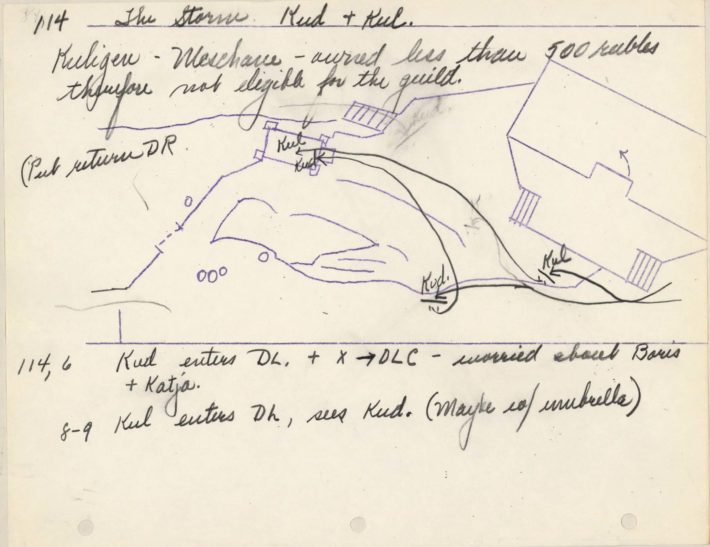 114 The Storm Kud + Kul.
Kuligen - Meschane - owned less than 500 rubles
therefore not eligible for the guild.
(Put return DR
Kul
Kud
Kud.
Kul
114, 6 Kud enters DL. + X → DLC - worried about Boris
+ Katja.
8-9 Kul enters DL, sees Kud. (Maybe w/ umbrella)